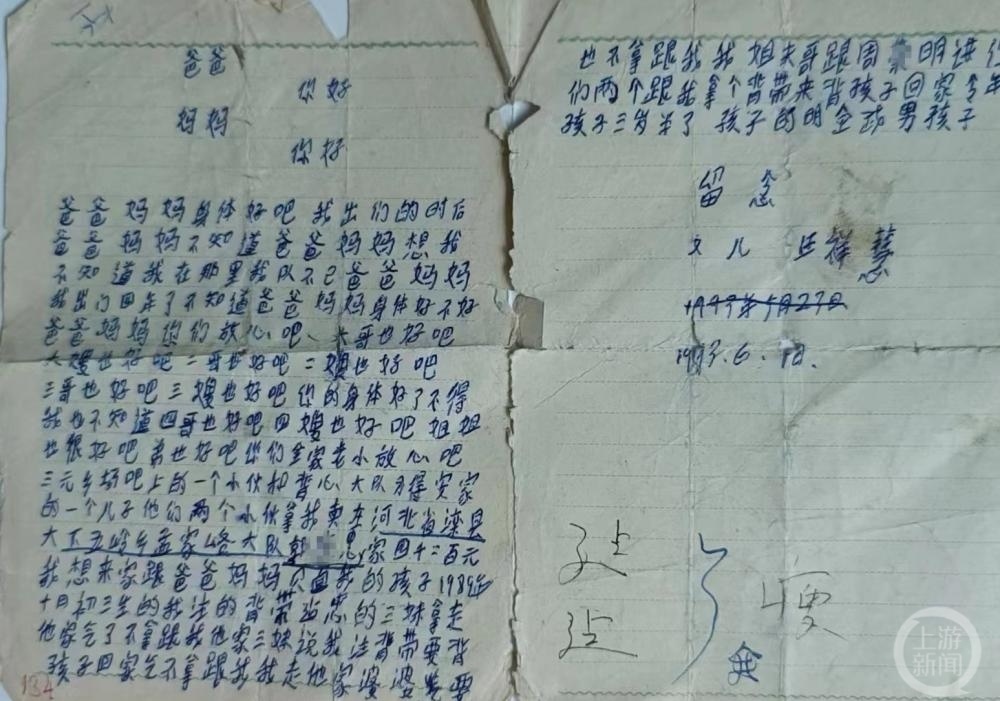 爸爸
你好
妈妈
你好
爸爸 妈妈身体好吧 我出们的时后
爸爸 妈妈不知道爸爸妈妈想我
不知道我在那里我队不己爸爸妈妈
我出门四年了不知道爸爸妈妈身体好不好
爸爸妈妈你们放心吧、大哥也好吧
大嫂也好吧二哥也好吧二嫂也好吧
三哥也好吧三嫂也好吧你的身体好了不得
我也不知道四哥也好吧四嫂也好吧姐姐
也很好吧弟也好吧你们全家老小放心吧
三元乡场吧上的一个小伙和背心大队
的一个儿子他们两个小伙拿我卖在河北省滦县
大下五岭乡孟家峪大队 家四千二百元
我想来家跟爸爸妈妈 我的孩子1989年
十月初三生的我法的背带 的三妹拿走
他家气了不拿跟我他家三妹说我法背带要背
孩子回家气不拿跟我我走他家婆婆 要
134
也不拿跟我我姐夫哥跟周 明进
们两个跟我拿个背带来背孩子回家今年
孩子三岁半了 孩子的明全 男孩子
留念
女儿 祥慧
1993.6.1日.
上游新闻